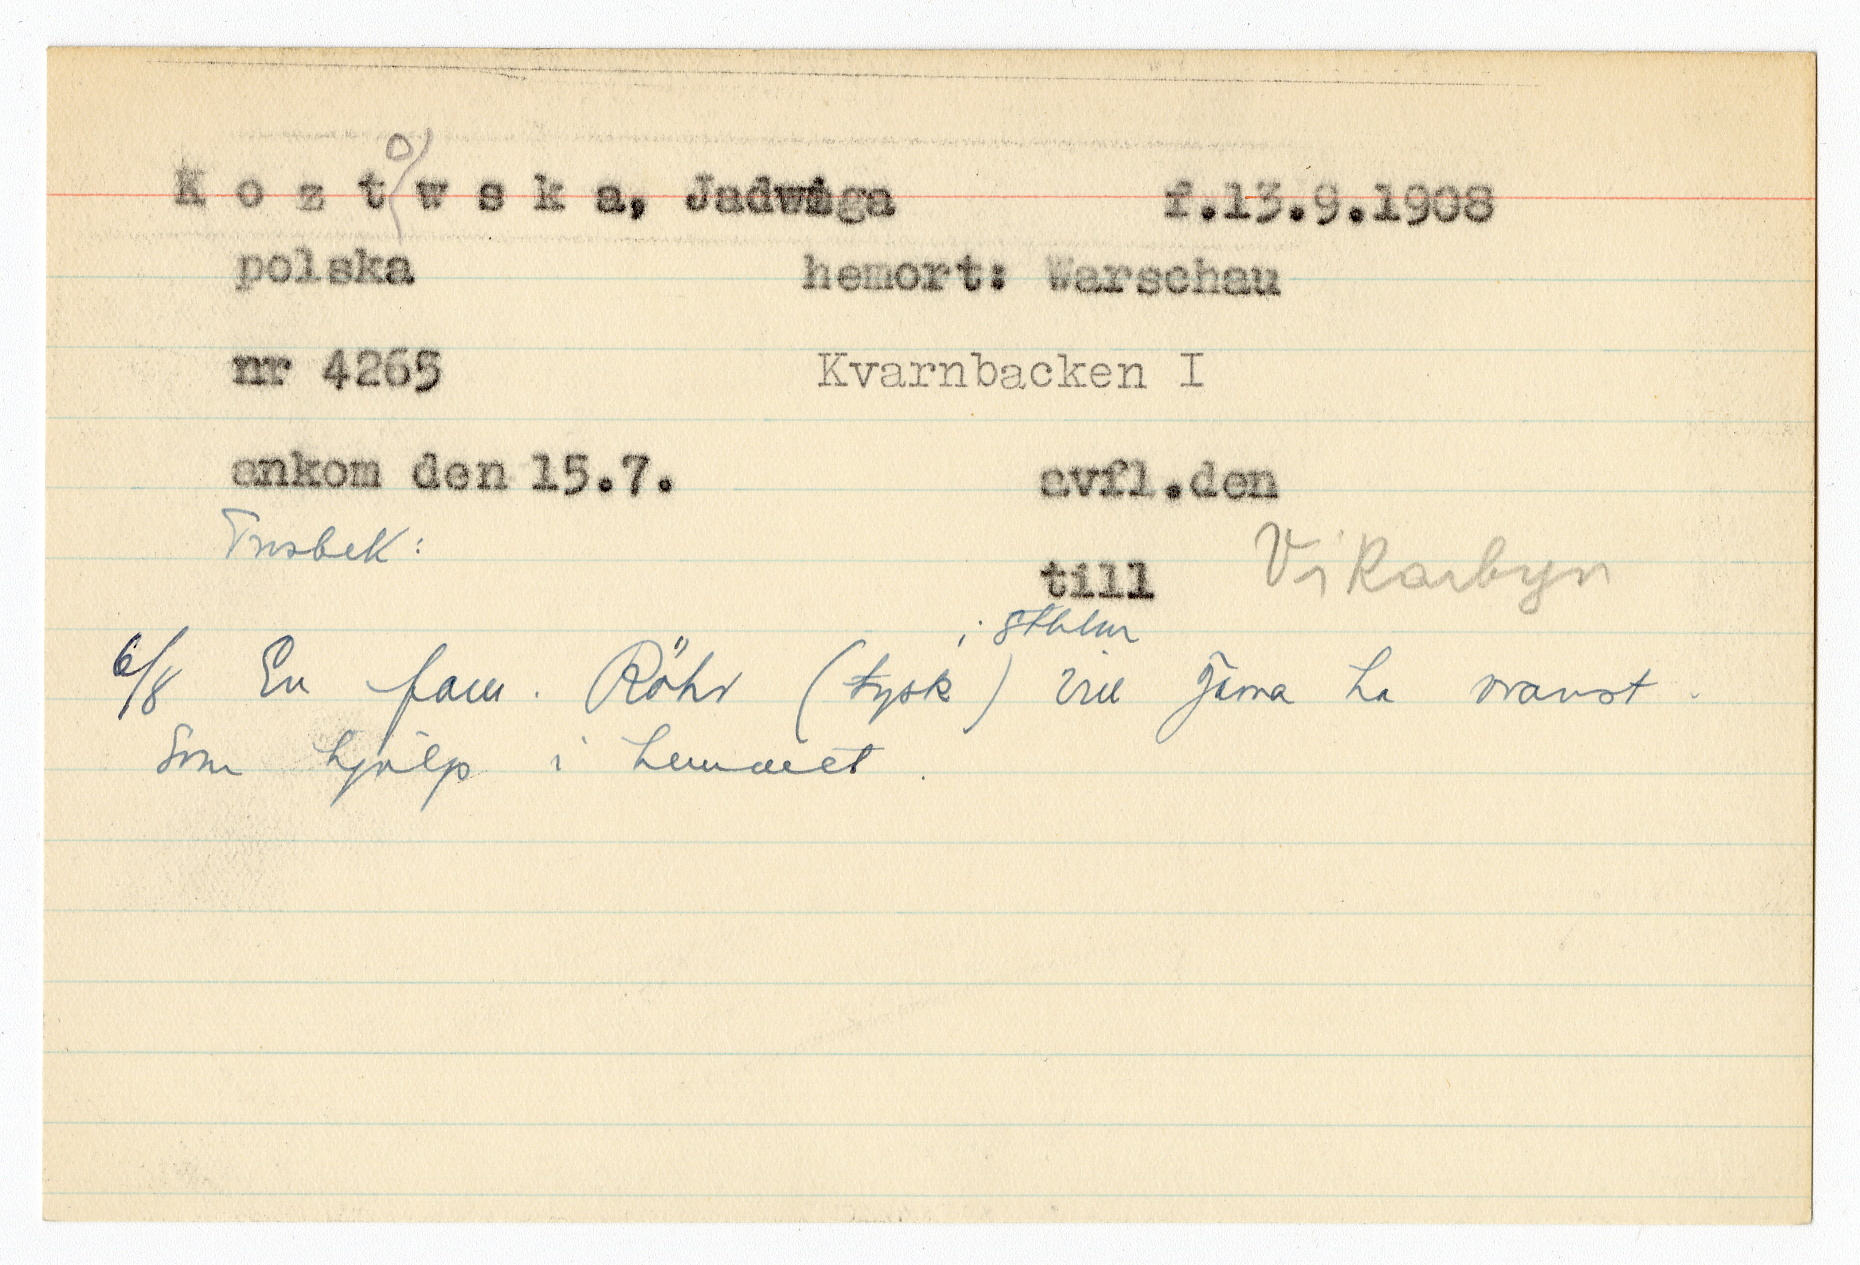 K o z t o w s k a, Jadwiga f.13.9.1908
polska hemort: Warschau
nr 4265 Kvarnbacken I
ankom den 15.7. avfl.den
till Vikarbyn
i Sthlm
6/8 En fam. Röhr (tysk) vill gärna ha ovanst.
som hjälp i hemmet.